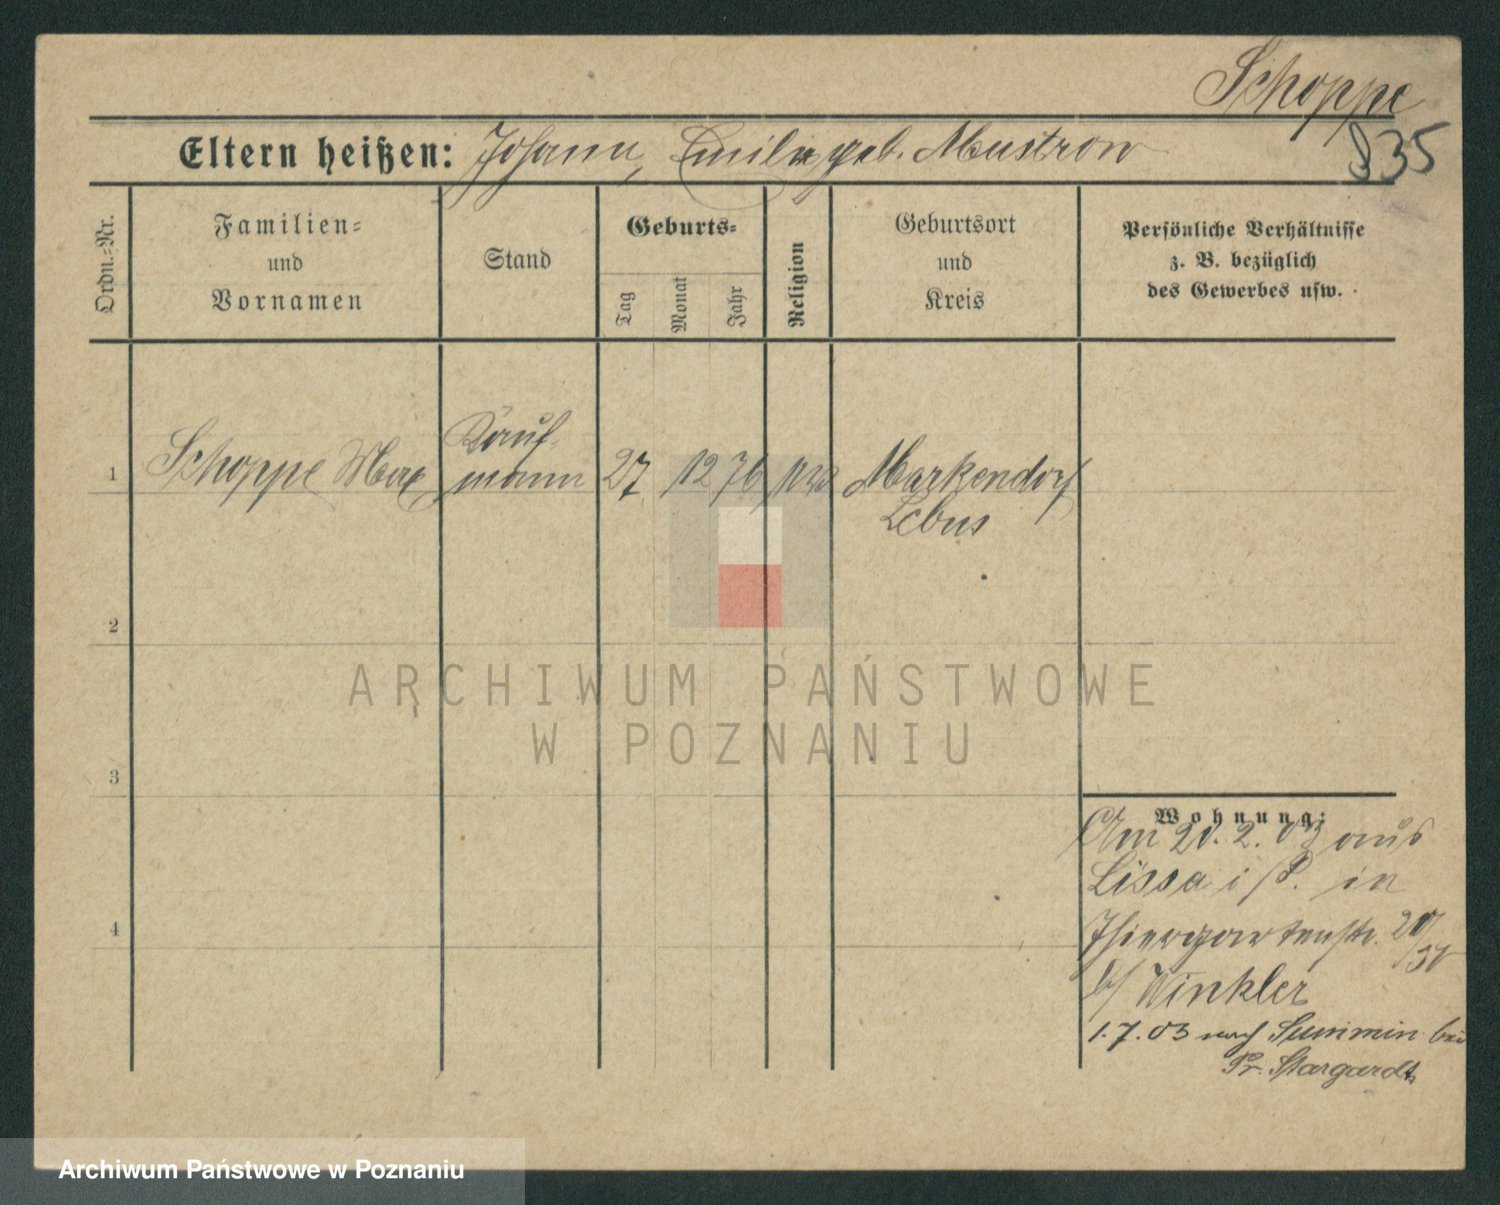 Schoppe
835
Eltern heißen: Johann, Emilie geb. Mustrow
Ordn.-Nr.
Familien-
und
Vornamen
Stand
Geburts-
Tag
Monat
Jahr
Religion
Geburtsort
und
Kreis
Persönliche Verhältnisse
z. B. bezüglich
des Gewerbes usw.
1
Schoppe Max
Kauf-
mann
27 12 76
Markendorf
Lebus
2
3
4
ARCHIWUM PAŃSTWOWE
W POZNANIU
Wohnung:
Am 20. 2. 03 aus
Lissa i/P. in
Thiergartenstr.
b/ Winkler
1.7.03 nach Summin bei
Pr. Stargardt
Archiwum Państwowe w Poznaniu